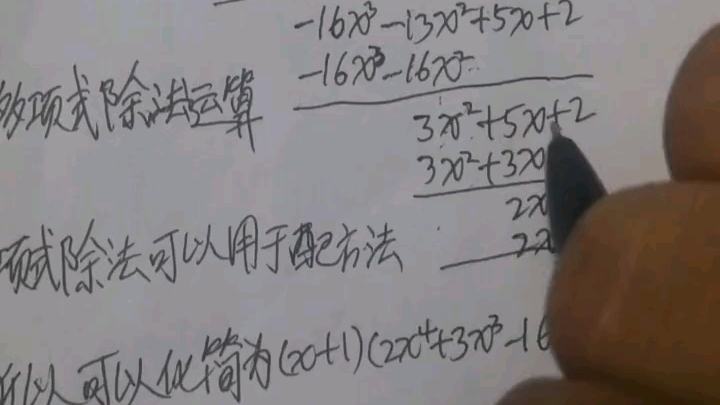 -16x³-13x²+5x+2
-16x³-16x²
多项式除法运算
3x²+5x+2
3x²+3x
2x
项式除法可以用于配方法
2x
所以可以化简为(x+1)(2x⁴+3x³-16